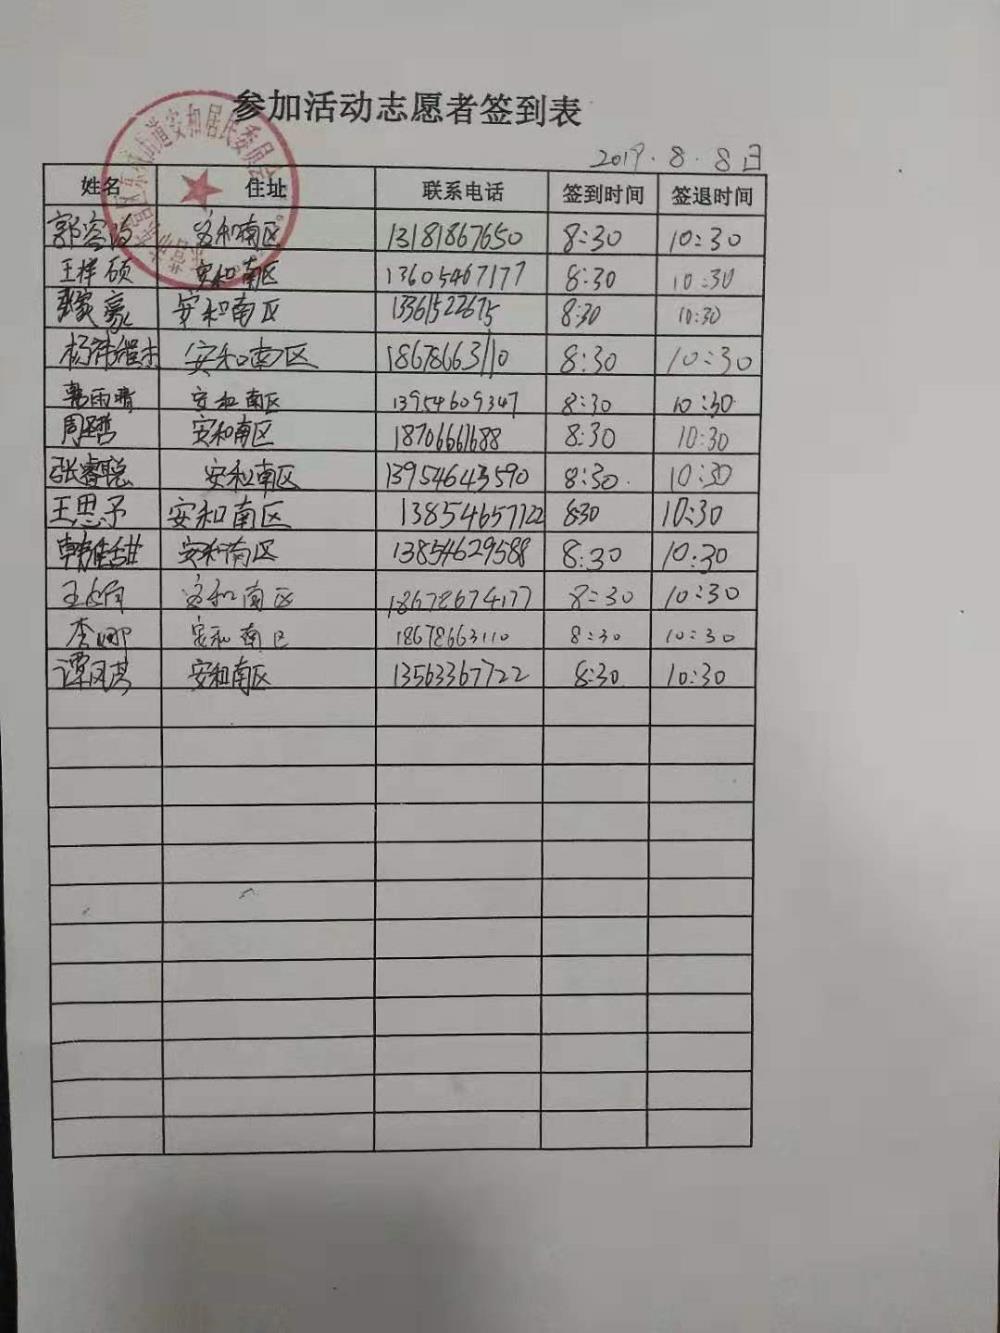 参加活动志愿者签到表
2019.8.8日
姓名 住址 联系电话 签到时间 签退时间
郭容 安和南区 13181867650 8:30 10:30
王样硕 安和南区 13605467177 8:30 10:30
豪 安和南区 13361522675 8:30 10:30
杨 安和南区 18678663110 8:30 10:30
韩雨晴 安和南区 13954609347 8:30 10:30
周 安和南区 18706661688 8:30 10:30
张睿聪 安和南区 13954643590 8:30 10:30
王思予 安和南区 13854657122 8:30 10:30
韩佳甜 安和南区 13854629588 8:30 10:30
王 安和南区 18678674177 8:30 10:30
李娜 安和南区 18678663110 8:30 10:30
谭凤 安和南区 13563367722 8:30 10:30